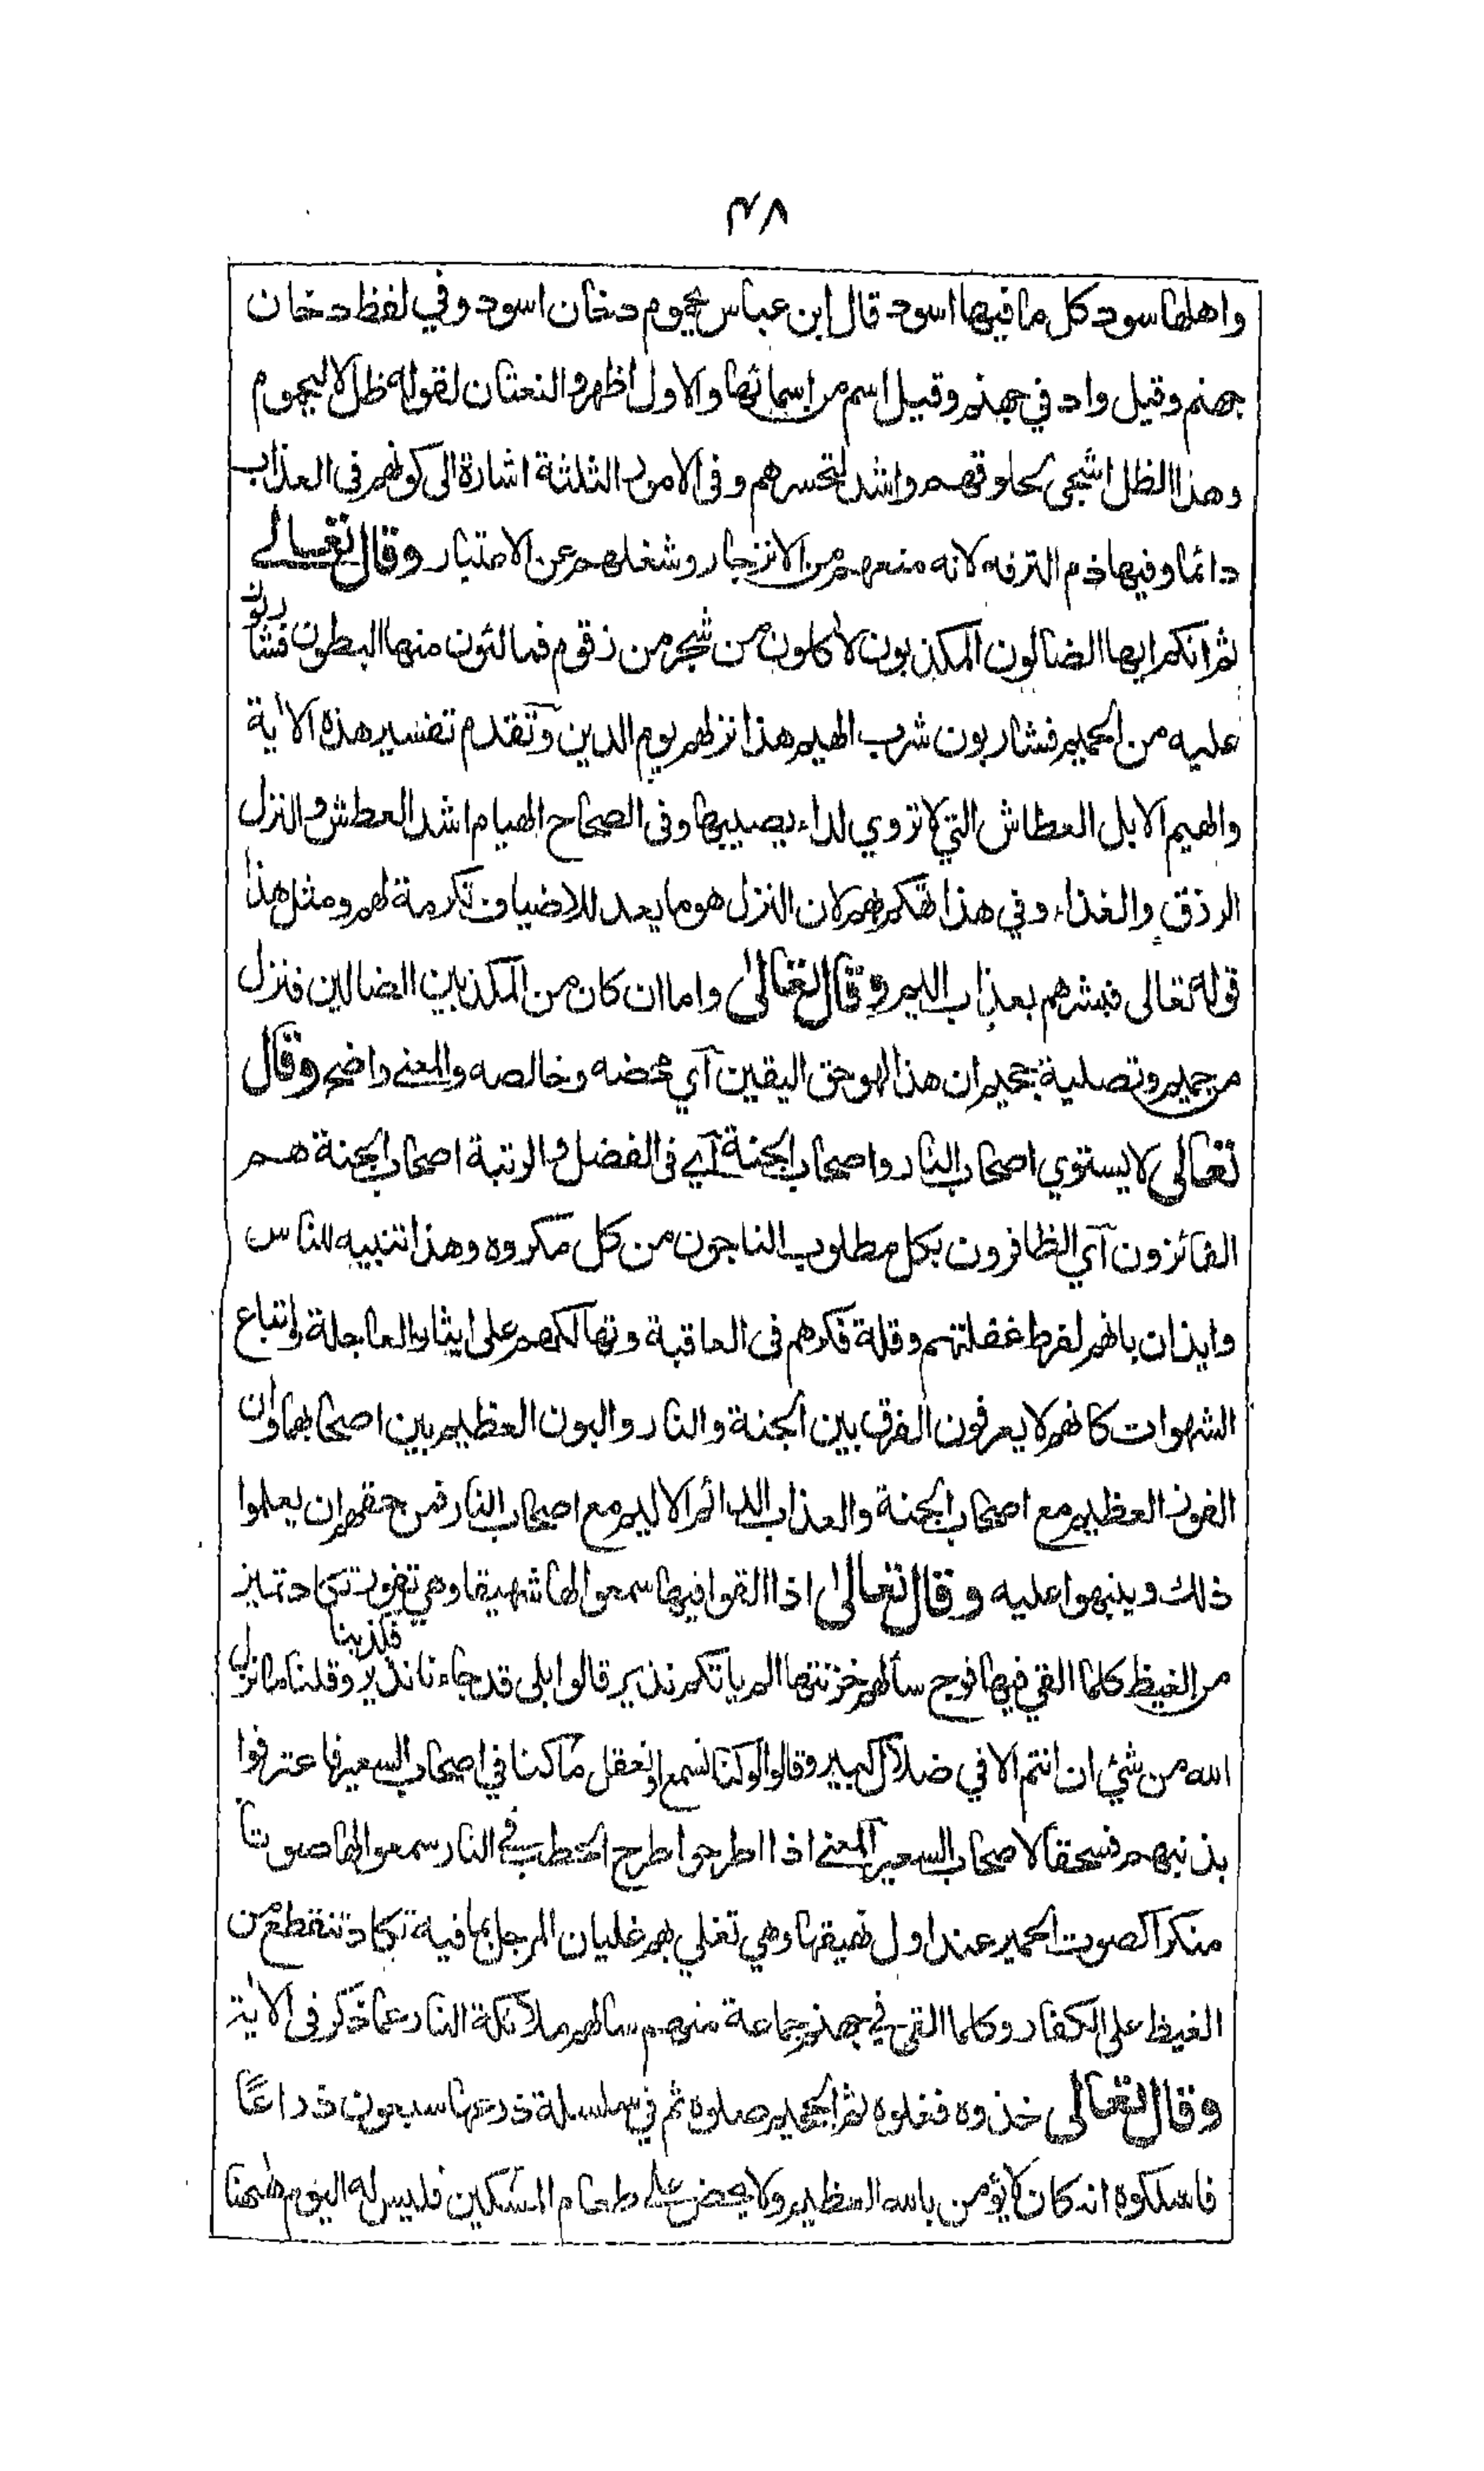 ٤٨
واهلها سود كل ما فيها اسود قال ابن عباس يحموم دخان اسود وفي لفظ دخان
جهنم وقيل واد في جهنم وقيل اسم من اسمائها والاول اظهر والنعتان لقوله ظل لا ليحموم
وهذا الظل اشجى لحلوقهم واشد لتحسرهم وفى الامور الثلثة اشارة الى كونهم فى العذاب
دائما وفيها ذم الترفه لانه منعهم من الانزجار وشغلهم عن الاعتبار وقال تعالے
ثم انكم ايها الضالون المكذبون لأكلون من شجر من زقوم فمالئون منها البطون فشاربون
عليه من الحميم فشاربون شرب الهيم هذا نزلهم يوم الدين وتقدم تفسير هذه الأية
والهيم الابل العطاش التي لا تروي لداء يصيبها وفى الصحاح الهيام اشد العطش والنزل
الرزق والغذاء وفي هذا تهكم بهم لان النزل هو ما يعد للاضياف تكرمة لهم ومثل هذا
قوله تعالى فبشرهم بعذاب اليم وقال تعالىٰ واما ان كان من المكذبين الضالين فنزل
من حميم وتصلية جحيم ان هذا لهو حق اليقين آي محضه وخالصه والمعنے واضح وقال
تعالى لا يستوي اصحاب النار واصحاب الجنة آے فى الفضل والرتبة اصحاب الجنة هم
الفائزون آي الظافرون بكل مطلوب الناجون من كل مكروه وهذا تنبيه للناس
وايذان بانهم لفرط غفلتهم وقلة فكرهم فى العاقبة وتهالكهم على ايثار العاجلة واتباع
الشهوات كانهم لا يعرفون الفرق بين الجنة والنار والبون العظيم بين اصحابهما وان
الفوز العظيم مع اصحاب الجنة والعذاب الدائم الاليم مع اصحاب النار فمن حقهم ان يعلموا
ذلك وينبهوا عليه وقال تعالىٰ اذا القوا فيها سمعوا لها شهيقا وهي تفور تكاد تميز
من الغيظ كلما القي فيها فوج سألهم خزنتها الم ياتكم نذير قالوا بلى قد جاءنا نذير فكذبنا وقلنا ما نزل
الله من شئ ان انتم الا في ضلال كبير وقالوا لو كنا نسمع او نعقل ما كنا في اصحاب السعير فاعترفوا
بذنبهم فسحقا لاصحاب السعير المعنے اذا اطرحوا طرح الحطب في النار سمعوا لها صوتا
منكرا كصوت الحمير عند اول نهيقها وهي تغلي بهم غليان المرجل بما فيه تكاد تنقطع من
الغيظ على الكفار وكلما القي في جهنم جماعة منهم سالهم ملآئكة النار عما ذكر فى الأية
وقال تعالى خذوه فغلوه ثم الجحيم صلوه ثم في سلسلة ذرعها سبعون ذراعًا
فاسلكوه انه كان لا يؤمن بالله العظيم ولا يحض على طعام المسكين فليس له اليوم ههنا